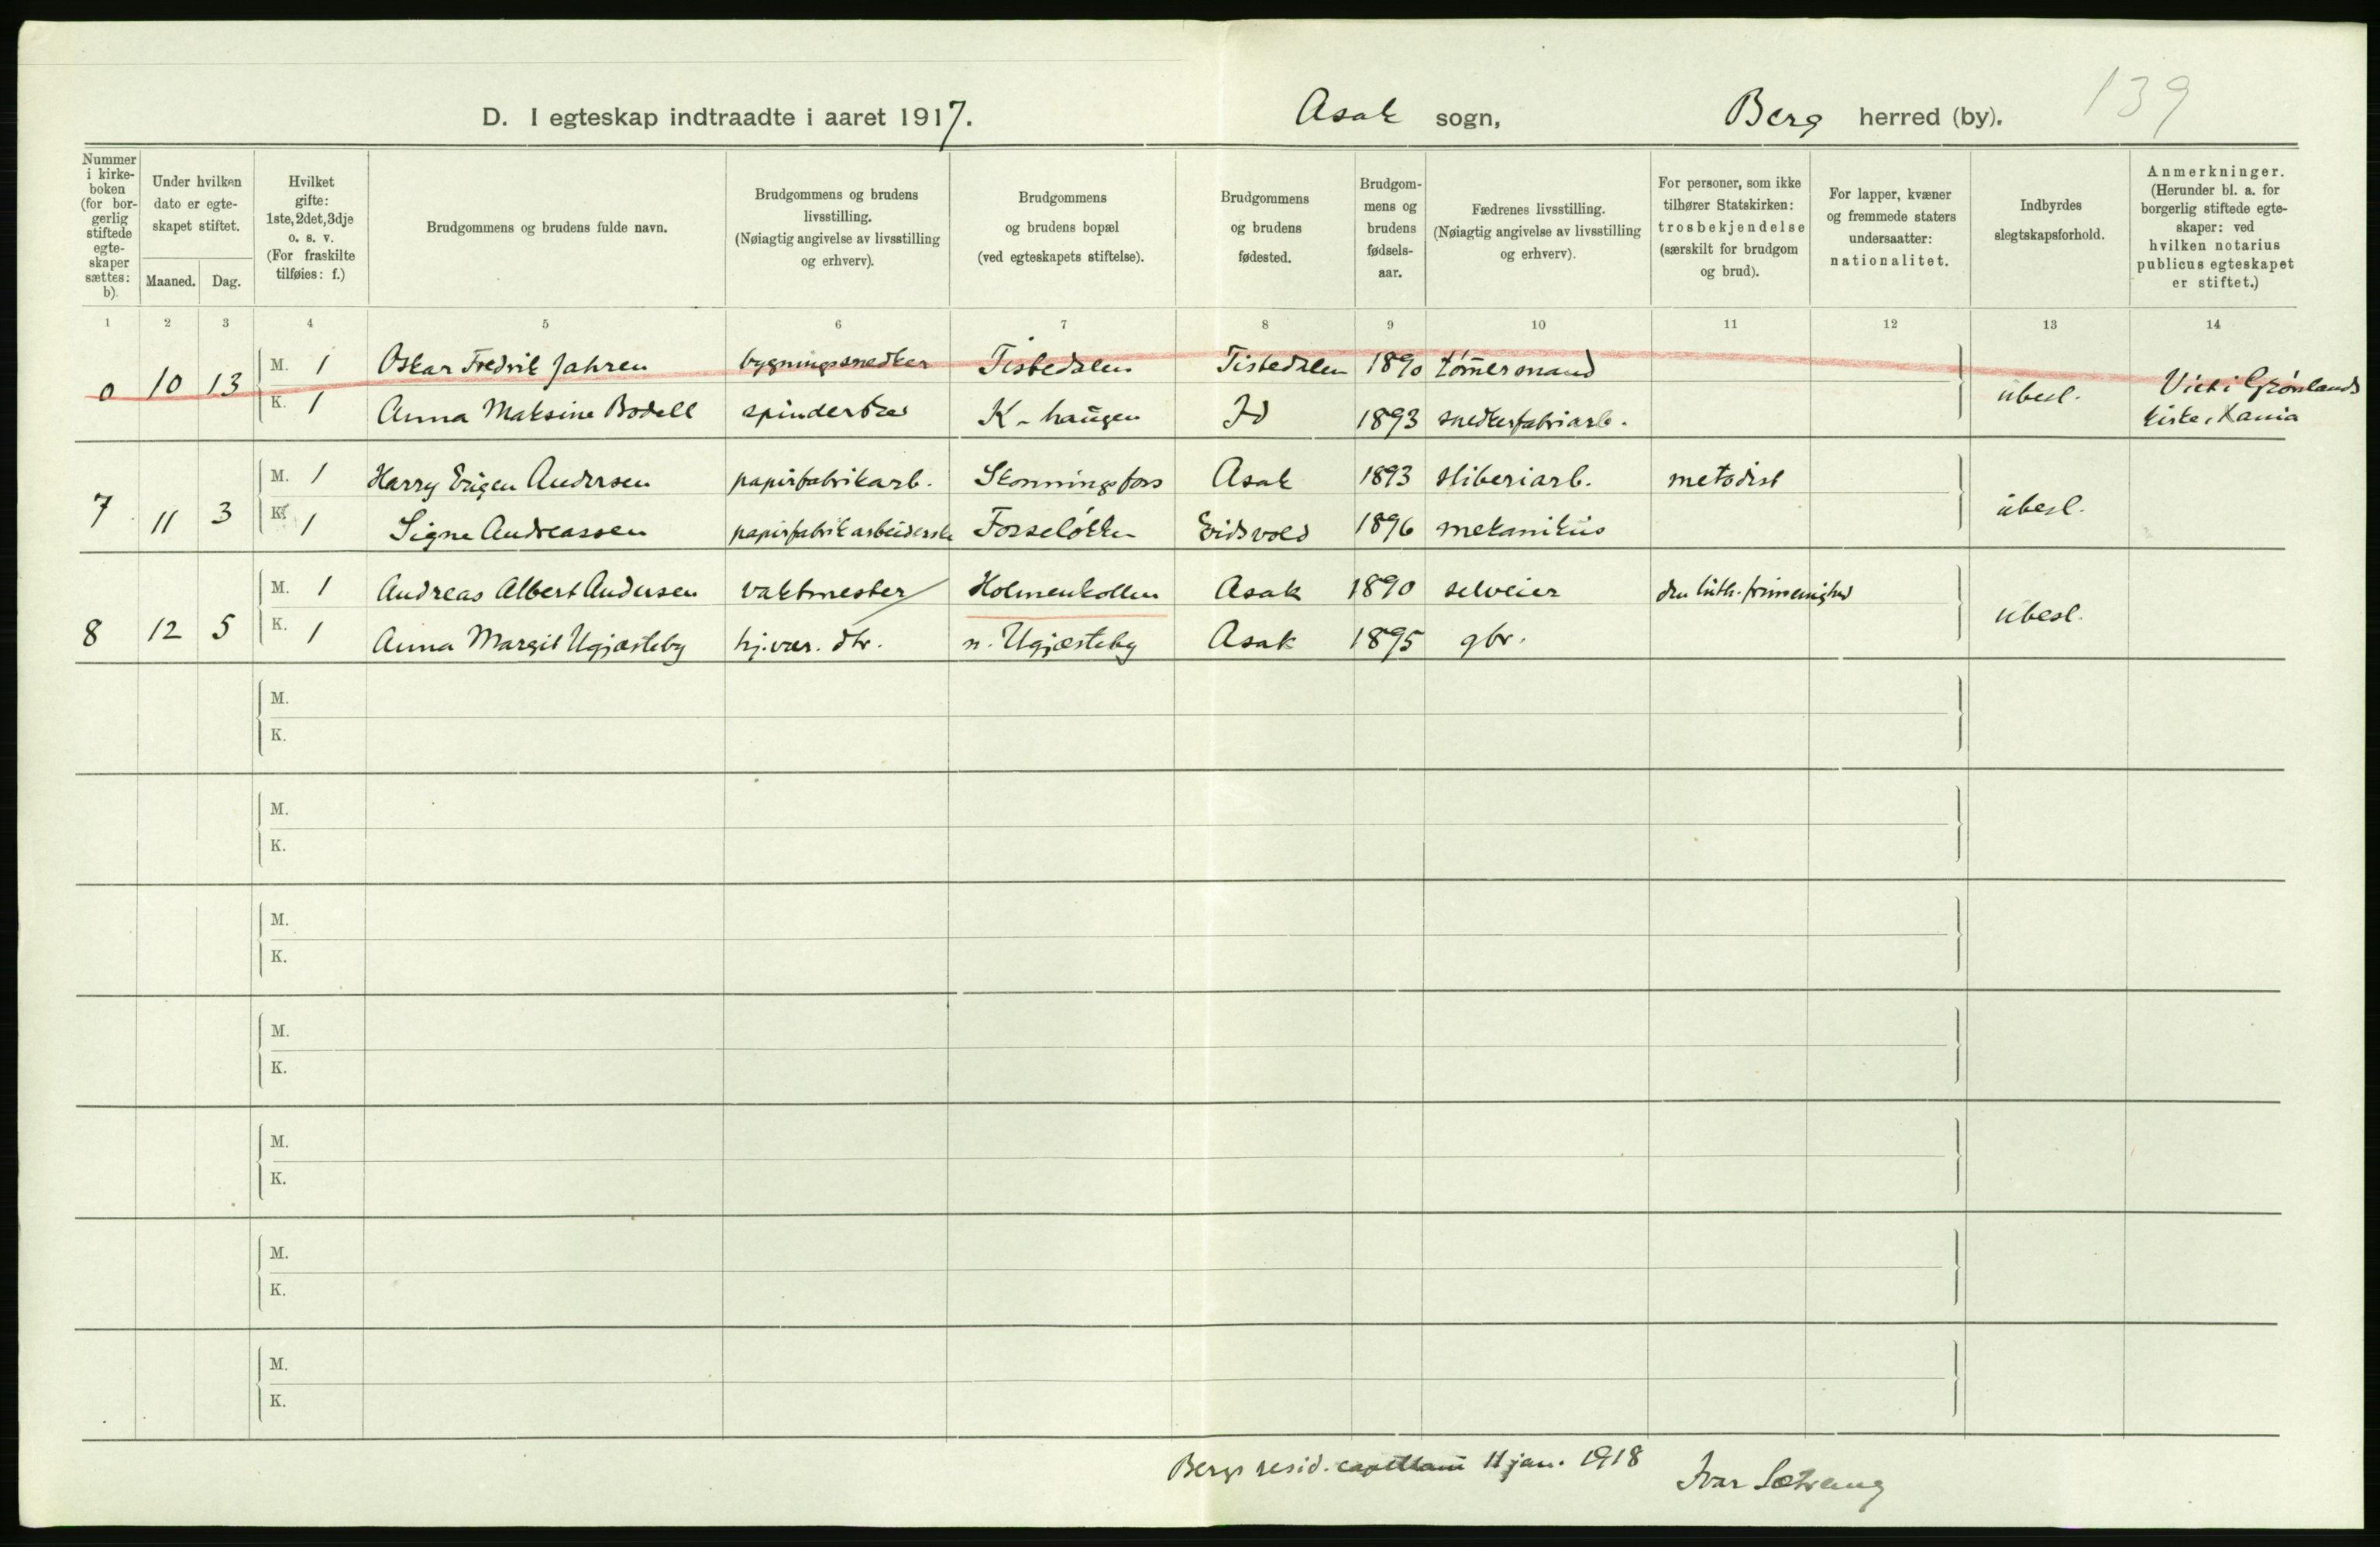 139
D. I egteskap indtraadte i aaret 1917. Asak sogn, Berg herred (by).
Nummer i kirkeboken (for borgerlig stiftede egteskaper sættes: b).
Under hvilken dato er egteskapet stiftet.
Maaned. Dag.
Hvilket gifte: 1ste, 2det, 3dje o. s. v. (For fraskilte tilføies: f.)
Brudgommens og brudens fulde navn.
Brudgommens og brudens livsstilling. (Nøiagtig angivelse av livsstilling og erhverv).
Brudgommens og brudens bopæl (ved egteskapets stiftelse).
Brudgommens og brudens fødested.
Brudgommens og brudens fødselsaar.
Fædrenes livsstilling. (Nøiagtig angivelse av livsstilling og erhverv).
For personer, som ikke tilhører Statskirken: trosbekjendelse (særskilt for brudgom og brud).
For lapper, kvæner og fremmede staters undersaatter: nationalitet.
Indbyrdes slegtskapsforhold.
Anmerkninger. (Herunder bl. a. for borgerlig stiftede egteskaper: ved hvilken notarius publicus egteskapet er stiftet.)
1 2 3 4 5 6 7 8 9 10 11 12 13 14
0 10 13 M. 1 Oskar Fredrik Jahren bygningssnedker Tistedalen Tistedalen 1890 tømermand
K. 1 Anna Maksine Bodell K-haugen Id 1893 snedkerfabriarb. ubesl. Viet i Grønlands kirke, Kania
7 11 3 M. 1 Harry Eugen Andersen papirfabrikarb. Skonningsfoss Asak 1893 sliberiarb. metodist
K. 1 Signe Andreassen papirfabrikarbeiderske Forseløkken Eidsvold 1896 mekanikus ubesl.
8 12 5 M. 1 Andreas Albert Andersen vaktmester Holmenkollen Asak 1890 selveier den luth. frimenighed
K. 1 Anna Margit Ugjæsteby hj.vær. dtr. n. Ugjæsteby Asak 1895 gbr. ubesl.
M.
K.
M.
K.
M.
K.
M.
K.
M.
K.
M.
K.
M.
K.
Bergs resid. capellani 11 jan. 1918 Ivar Sætrang